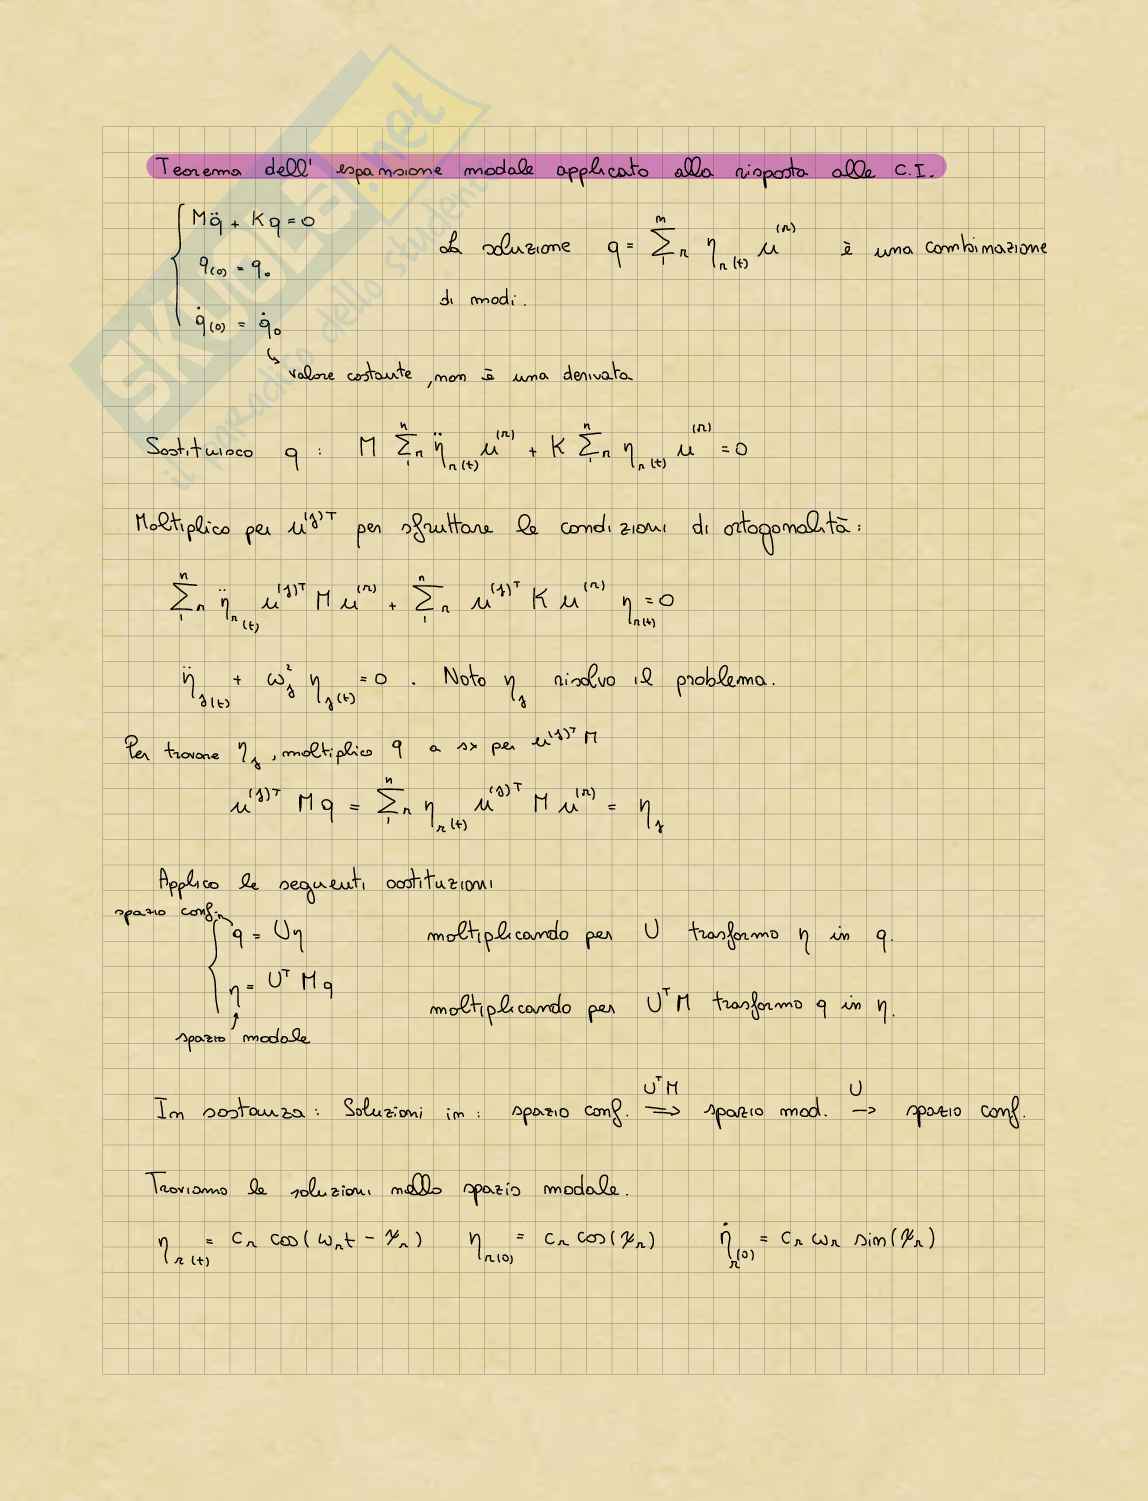 Teorema dell' espansione modale applicato alla risposta alle C.I.
Mq̈ + Kq = 0
q(0) = q₀
q̇(0) = q̇₀
La soluzione q = Σ₁ⁿ r η r(t) u⁽ʳ⁾ è una combinazione
di modi.
valore costante, non è una derivata
Sostituisco q : M Σ₁ⁿ r η̈ r(t) u⁽ʳ⁾ + K Σ₁ⁿ r η r(t) u⁽ʳ⁾ = 0
Moltiplico per u^(j)T per sfruttare le condizioni di ortogonalità:
Σ₁ⁿ r η̈ r(t) u^(j)T M u^(r) + Σ₁ⁿ r u^(j)T K u^(r) η r(t) = 0
η̈ j(t) + ω²j η j(t) = 0 . Noto ηj risolvo il problema.
Per trovare ηj, moltiplico q a sx per u^(j)T M
u^(j)T M q = Σ₁ⁿ r η r(t) u^(j)T M u^(r) = ηj
Applico le seguenti sostituzioni
spazio conf.
q = Uη moltiplicando per U trasformo η in q.
η = UᵀMq
moltiplicando per UᵀM trasformo q in η.
spazio modale
In sostanza: Soluzioni in: spazio conf. UᵀM ⇒ spazio mod. U → spazio conf.
Troviamo le soluzioni nello spazio modale.
η r(t) = Cr cos(ωr t − ψr) η r(0) = Cr cos(ψr) η̇ r(0) = Cr ωr sin(ψr)
SKUOLA.net
il paradiso dello studente